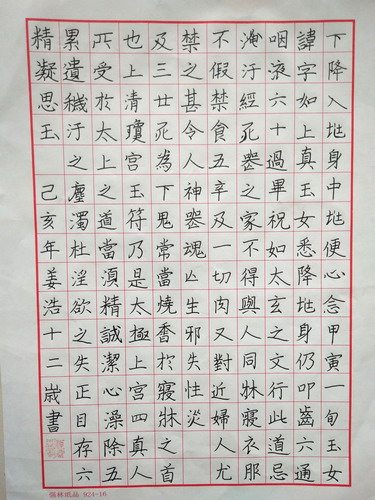 下降入兆身中兆便心念甲寅一旬玉女
諱字如上真玉女悉降兆身仍叩齒六通
咽液六十過畢祝如太玄之文行此道忌
淹汙經死喪之家不得與人同牀寢衣服
不假禁食五辛及一切肉又對近婦人尤
禁之甚令人神喪魂亡生邪失性災
及三世死為下鬼常當燒香於寢牀之首
也上清瓊宮玉符乃是太極上宮四真人
所受於太上之道當須精誠潔心澡除五
累遺穢汙之塵濁杜淫欲之失正目存六
精凝思玉 己亥年姜浩十二歲書
林紙品 924-16